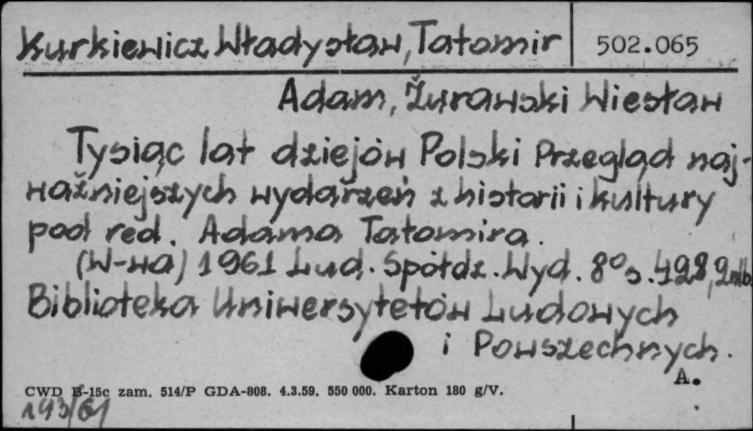 Kurkiewicz Władysław, Tatomir 502.065
Adam, Żurawski Wiesław
Tysiąc lat dziejów Polski Przegląd naj-
ważniejszych wydarzeń z historii i kultury
pod red. Adama Tatomira.
(W-wa) 1961 Lud. Spółdz. Wyd. 8° s. 428, 2nlb.
Biblioteka Uniwersytetów Ludowych
i Powszechnych.
A.
CWD B-15c zam. 514/P GDA-808. 4.3.59. 550 000. Karton 180 g/V.
143/61